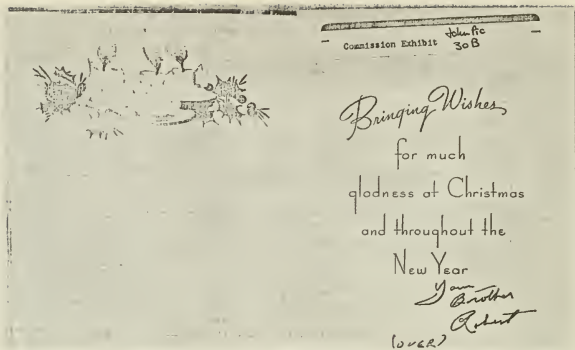 John Pic
Commission Exhibit 30B
Bringing Wishes
for much
gladness at Christmas
and throughout the
New Year
Your
Brother
Robert
(OVER)